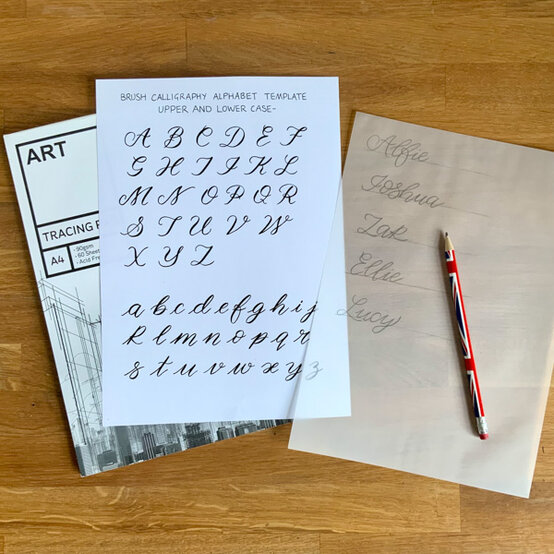 BRUSH CALLIGRAPHY ALPHABET TEMPLATE
UPPER AND LOWER CASE-
A B C D E F
G H I J K L
M N O P Q R
S T U V W
X Y Z
a b c d e f g h i j
k l m n o p q r
s t u v w x y z
ART
TRACING
A4
90gsm
60 Sheets
Acid Free
Alfie
Joshua
Zak
Ellie
Lucy